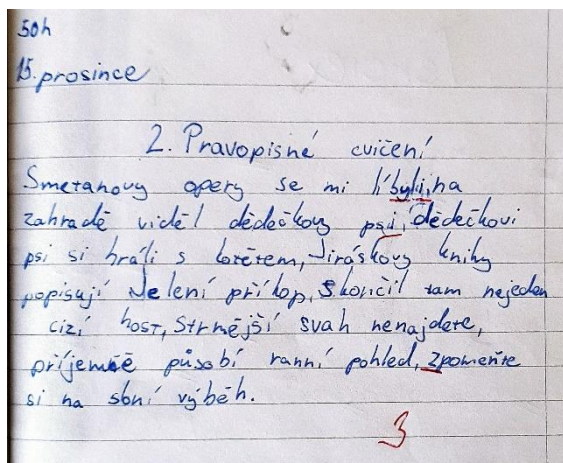 50h
15. prosince
2. Pravopisné cvičení
Smetanovy opery se mi líbylii, na
zahradě viděl dědečkovy psi, dědečkovi
psi si hráli s kotětem, Jiráskovy knihy
popisují Jelení příkop, skončil tam nejeden
cizí host, Strmější svah nenajdete,
príjemně působí ranní pohled, zpomeňte
si na sbní výběh.
3